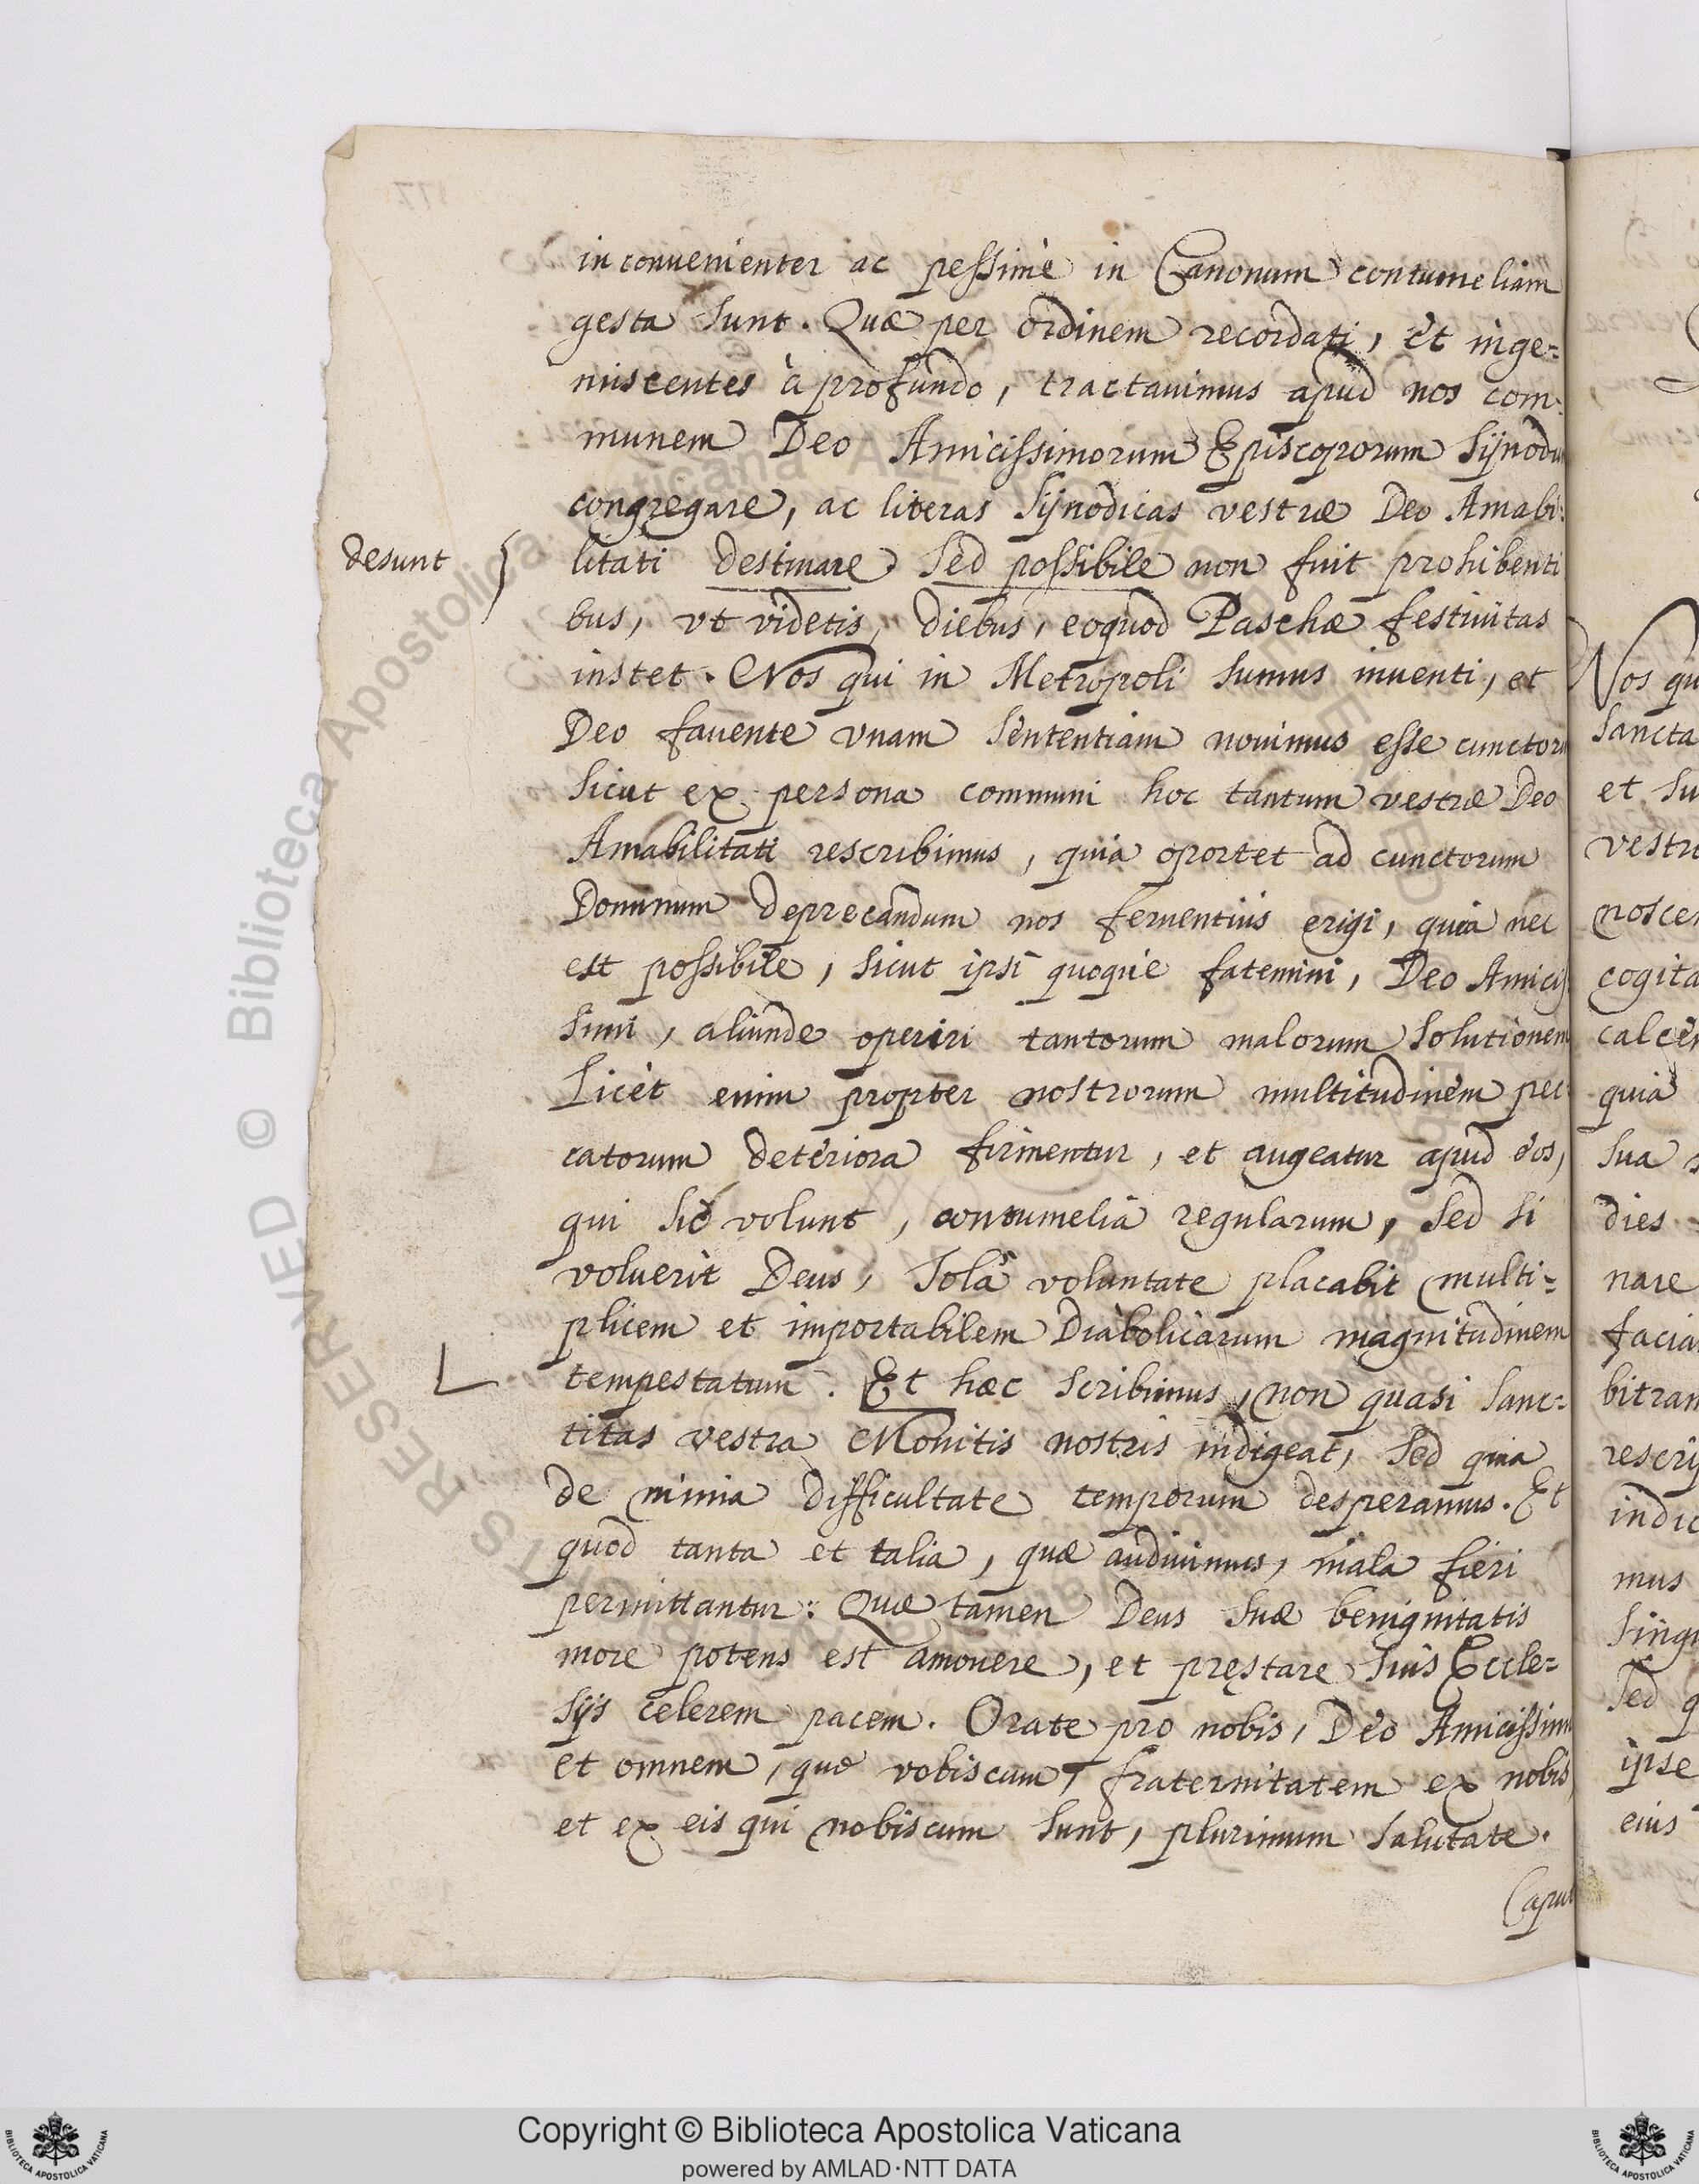 inconuenienter ac pessimè in Canonum contumeliam
gesta sunt. Quæ per ordinem recordati, et inge=
miscentes à profundo, tractauimus apud nos com-
munem Deo Amicissimorum Episcoporum Sÿnodu
congregare, ac literas Sÿnodicas vestræ Deo Amabi-
desunt
litati destinare. Sed possibile non fuit prohibenti
bus, vt videtis, diebus, eoquod Paschæ festiuitas
instet. Nos qui in Metropoli sumus inuenti, et
Deo fauente vnam sententiam nouimus esse cunctoru
sicut ex persona communi hoc tantum vestræ Deo
Amabilitati rescribimus, quia oportet ad cunctorum
Dominum deprecandum nos feruentius erigi, quia nec
est possibile, sicut ipsi quoque fatemini, Deo Amicis
simi, aliunde operiri tantorum malorum solutionem
Licèt enim propter nostrorum multitudinem pec-
catorum deteriora firmentur, et augeatur apud eos,
qui sic volunt, contumelia regularum, sed si
voluerit Deus, Solâ voluntate placabit multi=
plicem et importabilem Diabolicarum magnitudinem
tempestatum. Et hæc scribimus, non quasi Sanc=
titas vestra Monitis nostris indigeat, Sed quia
de nimia difficultate temporum desperamus. Et
quod tanta et talia, quæ audiuimus, mala fieri
permittantur: Quæ tamen Deus suæ benignitatis
more potens est amouere, et pręstare suis Eccle=
sijs celerem pacem. Orate pro nobis, Deo Amicissimi
et omnem, quæ vobiscum, fraternitatem ex nobis,
et ex eis qui nobiscum sunt, plurimum salutate.
Caput
Nos qu
sancta
et su
vestr
noscen
cogita
calce
quia
sua
dies
nare
facia
bitran
rescri
indic
mus
singu
Sed q
ipse
eius
© Biblioteca Apostolica Vaticana
Copyright © Biblioteca Apostolica Vaticana
powered by AMLAD·NTT DATA
BIBLIOTECA APOSTOLICA VATICANA
BIBLIOTECA APOSTOLICA VATICANA